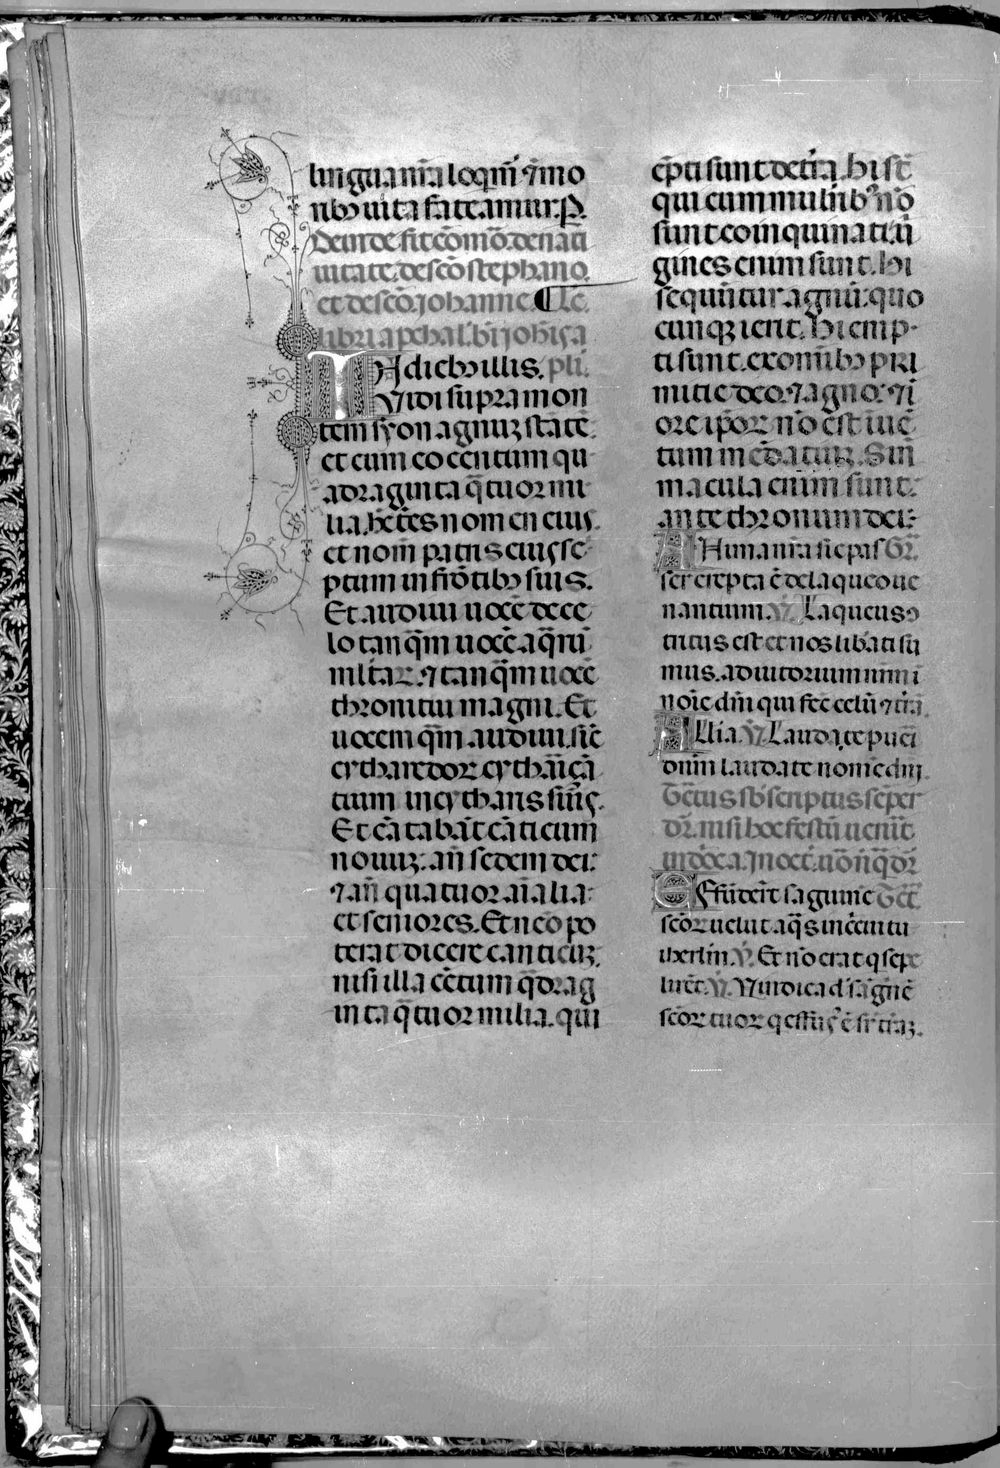 lingua nr̃a loqui᷑ ⁊ mo
ribꝫ uita fateamur. P.
Deinde fit cōmo. de nati
uitate. de scō stephano
et de scō. johanne. ¶ Lc̃.
libri apchal. bt̃i joħis a
IN dieb illis. pl̃i.
Vidi supra mon
tem syon agnuꝫ statē.
et cum eo centum qu
adraginta q̃tuor mi
lia. hñtes nomen eius.
et nom̃ patris eius se
ptum in frōtibꝫ suis.
Et audiui uocē de ce
lo tanq̃m uocē aq̃rũ
mltarꝝ. ⁊ tanq̃m uocē
thronitiui magni. Et
uocem q̃m audiui. sic̃
cytharedorꝝ cytharĩçã
tium in cytharis suis.
Et cātabāt cāticum
nouuꝫ. añ sedem dei.
⁊ añ quatuor aĩalia.
et seniores. Et neō po
terat dicere canticuꝫ.
nisi illa cētum q̃drag
inta q̃tuor milia. qui
ēpti sunt de t̃ra. hi st̃
qui cum mulĩibꝫ nō
sunt coinquinati. ũ
gines enim sunt. hi
sequũtur agnũ. quo
cunqꝫ ierit. Hi emp
ti sunt. ex omĩbꝫ pri
mitie deo. ⁊ agno. ⁊ ĩ
ore ipōꝝ nō est iuē
tum mēdatiuꝫ. Sin̄
macula enim sunt.
ante thronum dei.
ANima nr̃a sic pas Gr̃.
ser erepta ē de laqueo ue
nantium. V̄. Laqueus ꝯ
tritus est et nos libati su
mus. adiutorium nr̃m ĩ
noĩe dñi qui fec̃ celũ ⁊ t̃rã.
ALlia. V̄. Laudate pueri
dñm laudate nomē dñi.
Tc̃tus sb̃scriptus sēper
dr̃. nisi hoc festũ uenĩt
in dõca. Jn oct̃. uō nō q̃ dr̃
EFfũdert̃ saguinē Tc̃t̃.
scōꝝ uelut aq̃s in c̃cuitu
iherlm̃. V̄. Et nō erat q sepe
liret̃. V̄. Vindica dñe sãgnē
scōꝝ tuoꝝ q effusꝰ ē sr̃ t̃raꝫ.